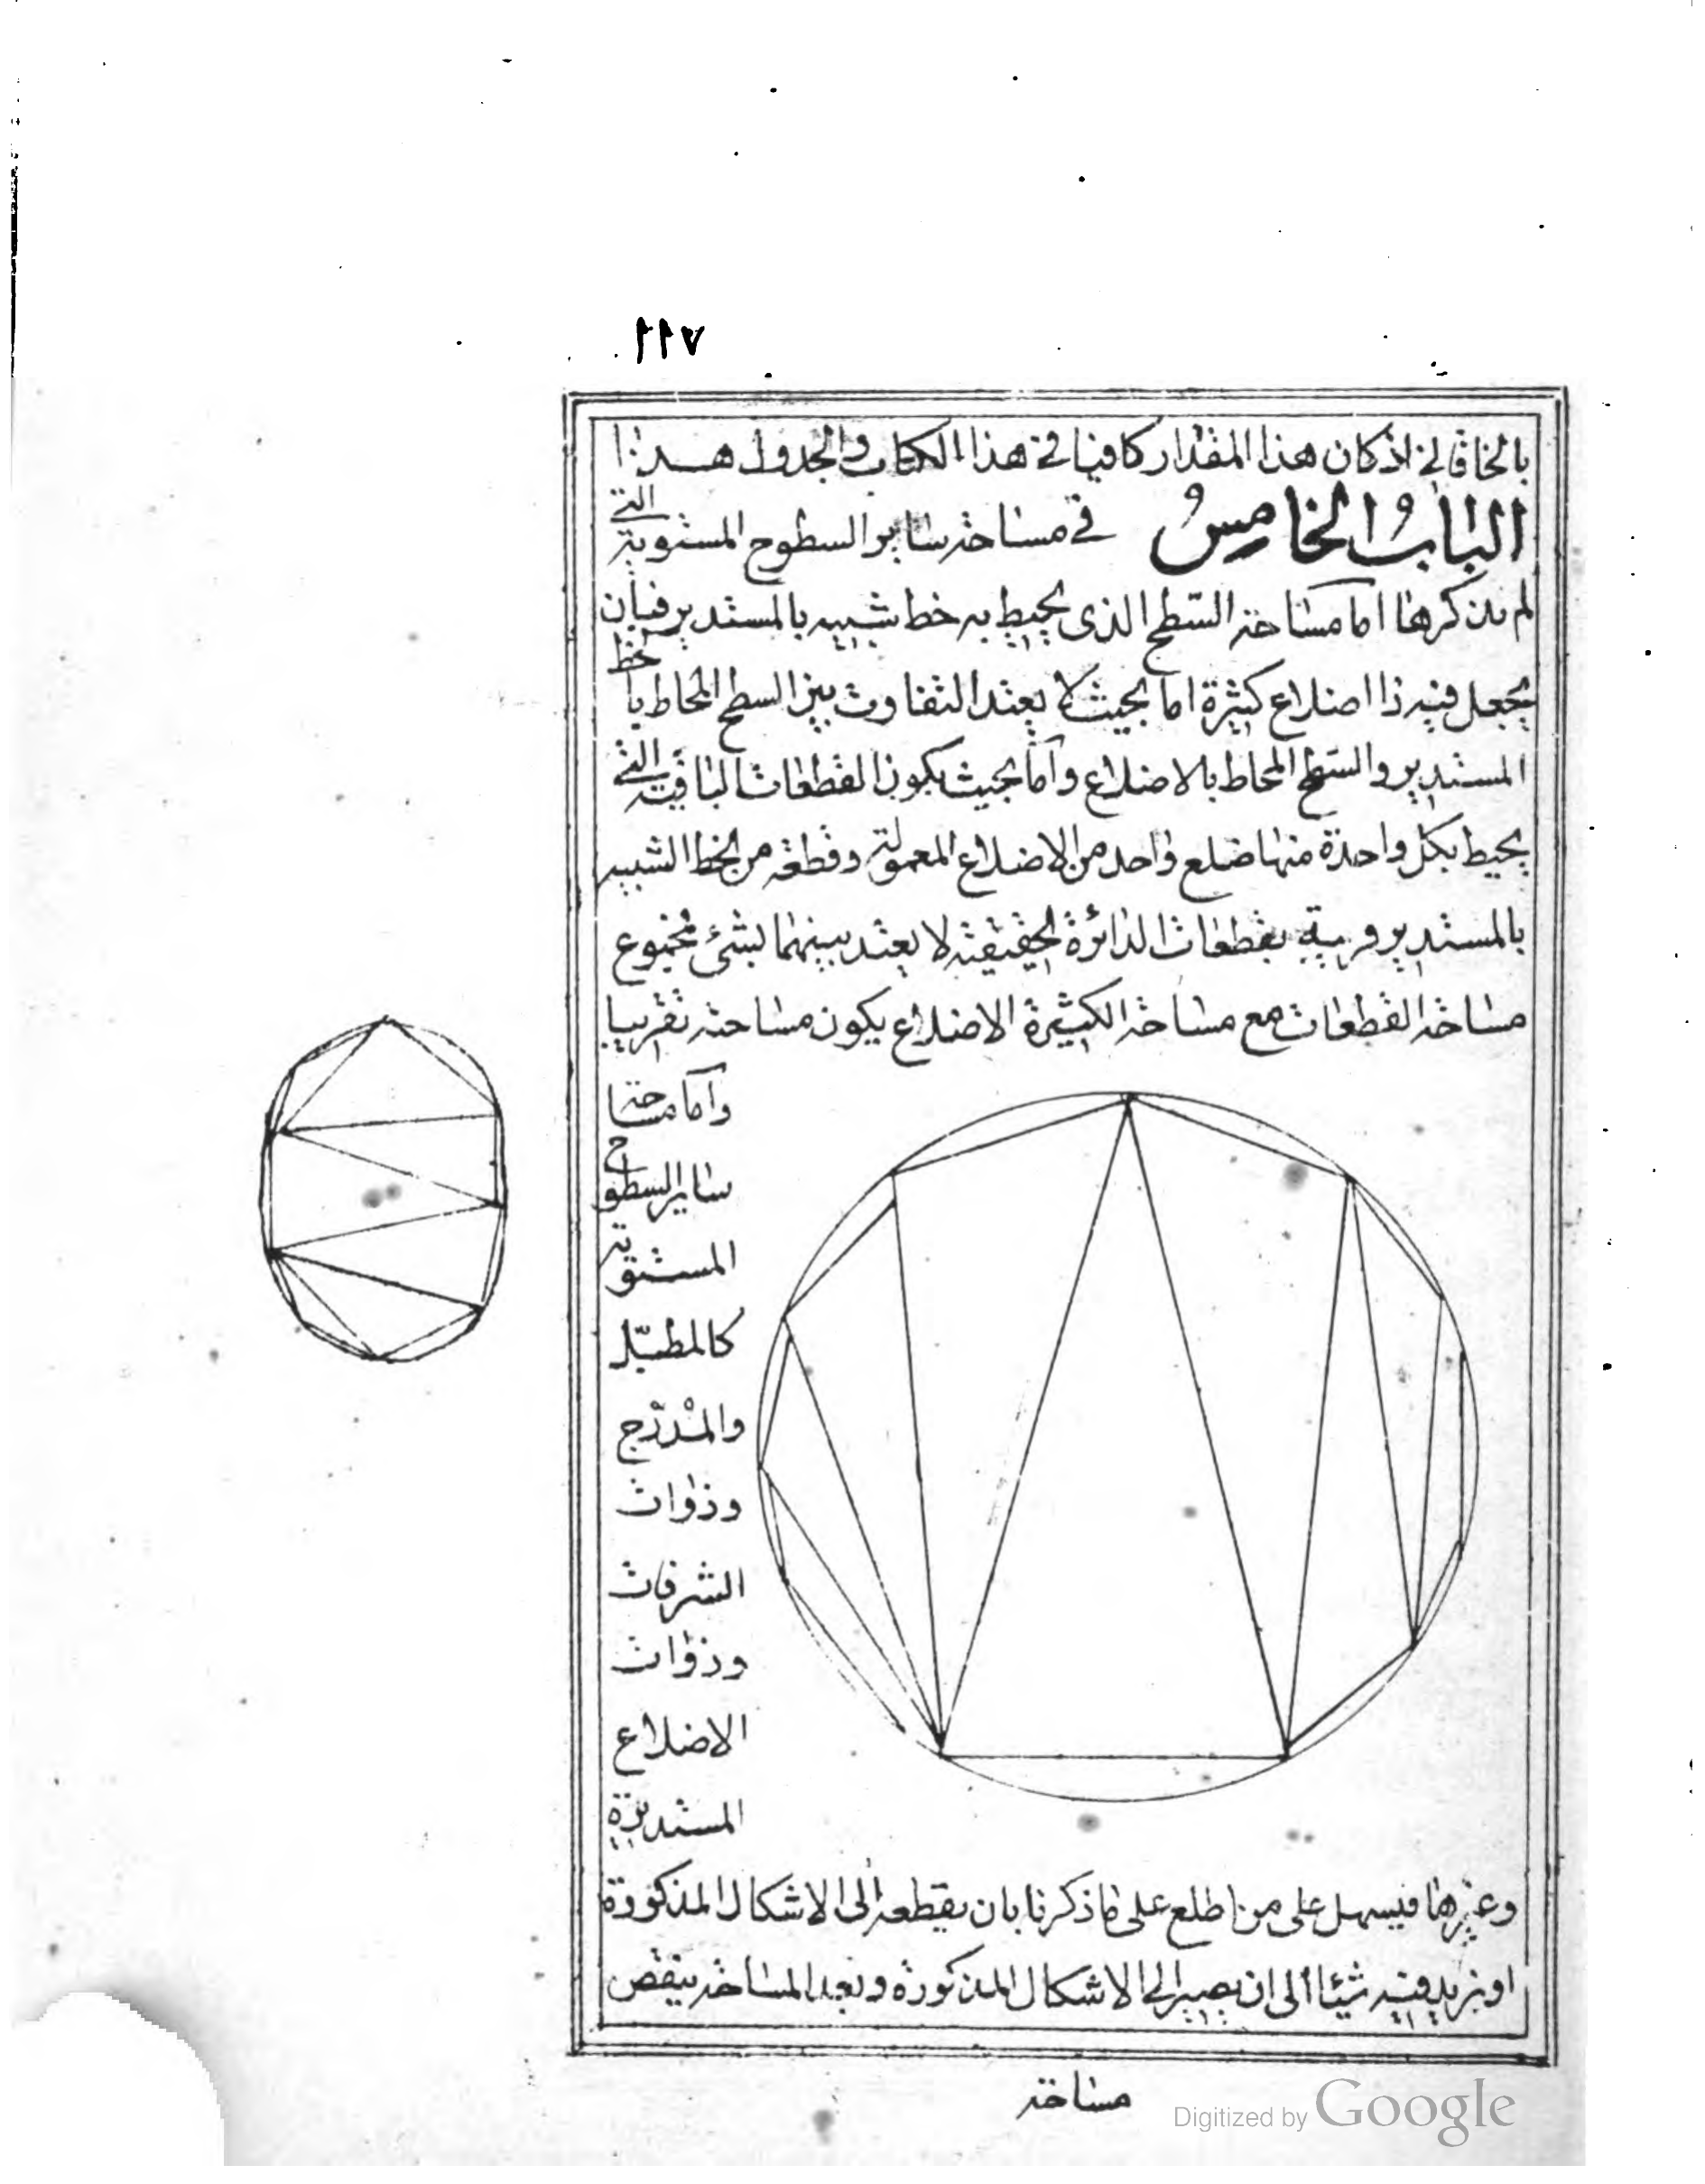 ١١٧
بالخاقاني اذ كان هذا المقدار كافيا في هذا الكتاب والجدول هذا
الباب الخامس في مساحة ساير السطوح المستوية التي
لم نذكرها اما مساحة السطح الذي يحيط به خط شبيه بالمستدير فبان
يجعل فيه ذا اضلاع كثيرة اما بحيث لا يعتد التفاوت بين السطح المحاط بالخط
المستدير والسطح المحاط بالاضلاع واما بحيث يكون القطعات الباقية التي
يحيط بكل واحدة منها ضلع واحد من الاضلاع المعمولة وقطعة من الخط الشبيه
بالمستدير قريبة بقطعات الدائرة الحقيقية لا يعتد بينهما بشئ فمجموع
مساحة القطعات مع مساحة الكثيرة الاضلاع يكون مساحته تقريبا
واما مساحة
ساير السطوح
المستوية
كالمطبل
والمدرج
وذوات
الشرفات
وذوات
الاضلاع
المستديرة
وغيرها فيسهل على من اطلع على ما ذكرنا بان يقطعه الى الاشكال المذكورة
او يزيد فيه شيئا الى ان يصير الى الاشكال المذكورة وبعد المساحة ينقص
مساحة
Digitized by Google